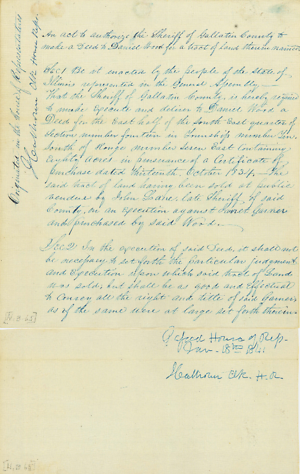 An act to authorize the Sheriff of Gallatin County to
make a Deed to Daniel Wood for a tract of land therein named
Sec 1 Be it enacted by the People of the State of
Illinois represented in the General Assembly
That the Sheriff of Gallatin County is hereby required
to make execute and deliver to Daniel Wood a
Deed for the East half of the South East quarter of
Section number fourteen in Township number Ten
South of Range number Seven East containing
Eighty acres in pursuance of a Certificate of
Purchase dated thirteenth October 1834 – The
said tract of land having been sold at public
vendue by John Lane late Sheriff of said
County, on an execution against
and purchased by said Wood.
Sec 2 In the execution of said Deed, it shall not
be necessary to set forth the particular judgment
and execution upon which said tract of land
was sold; but shall be as good and effectual
to convey all the right and title of said
as if the same were at large set forth therein
Passed House of Rep.
Jan. 18th 1841
Calhoun Clk. H. R.
Originated in the House of Representatives
Calhoun Clk House Reps.